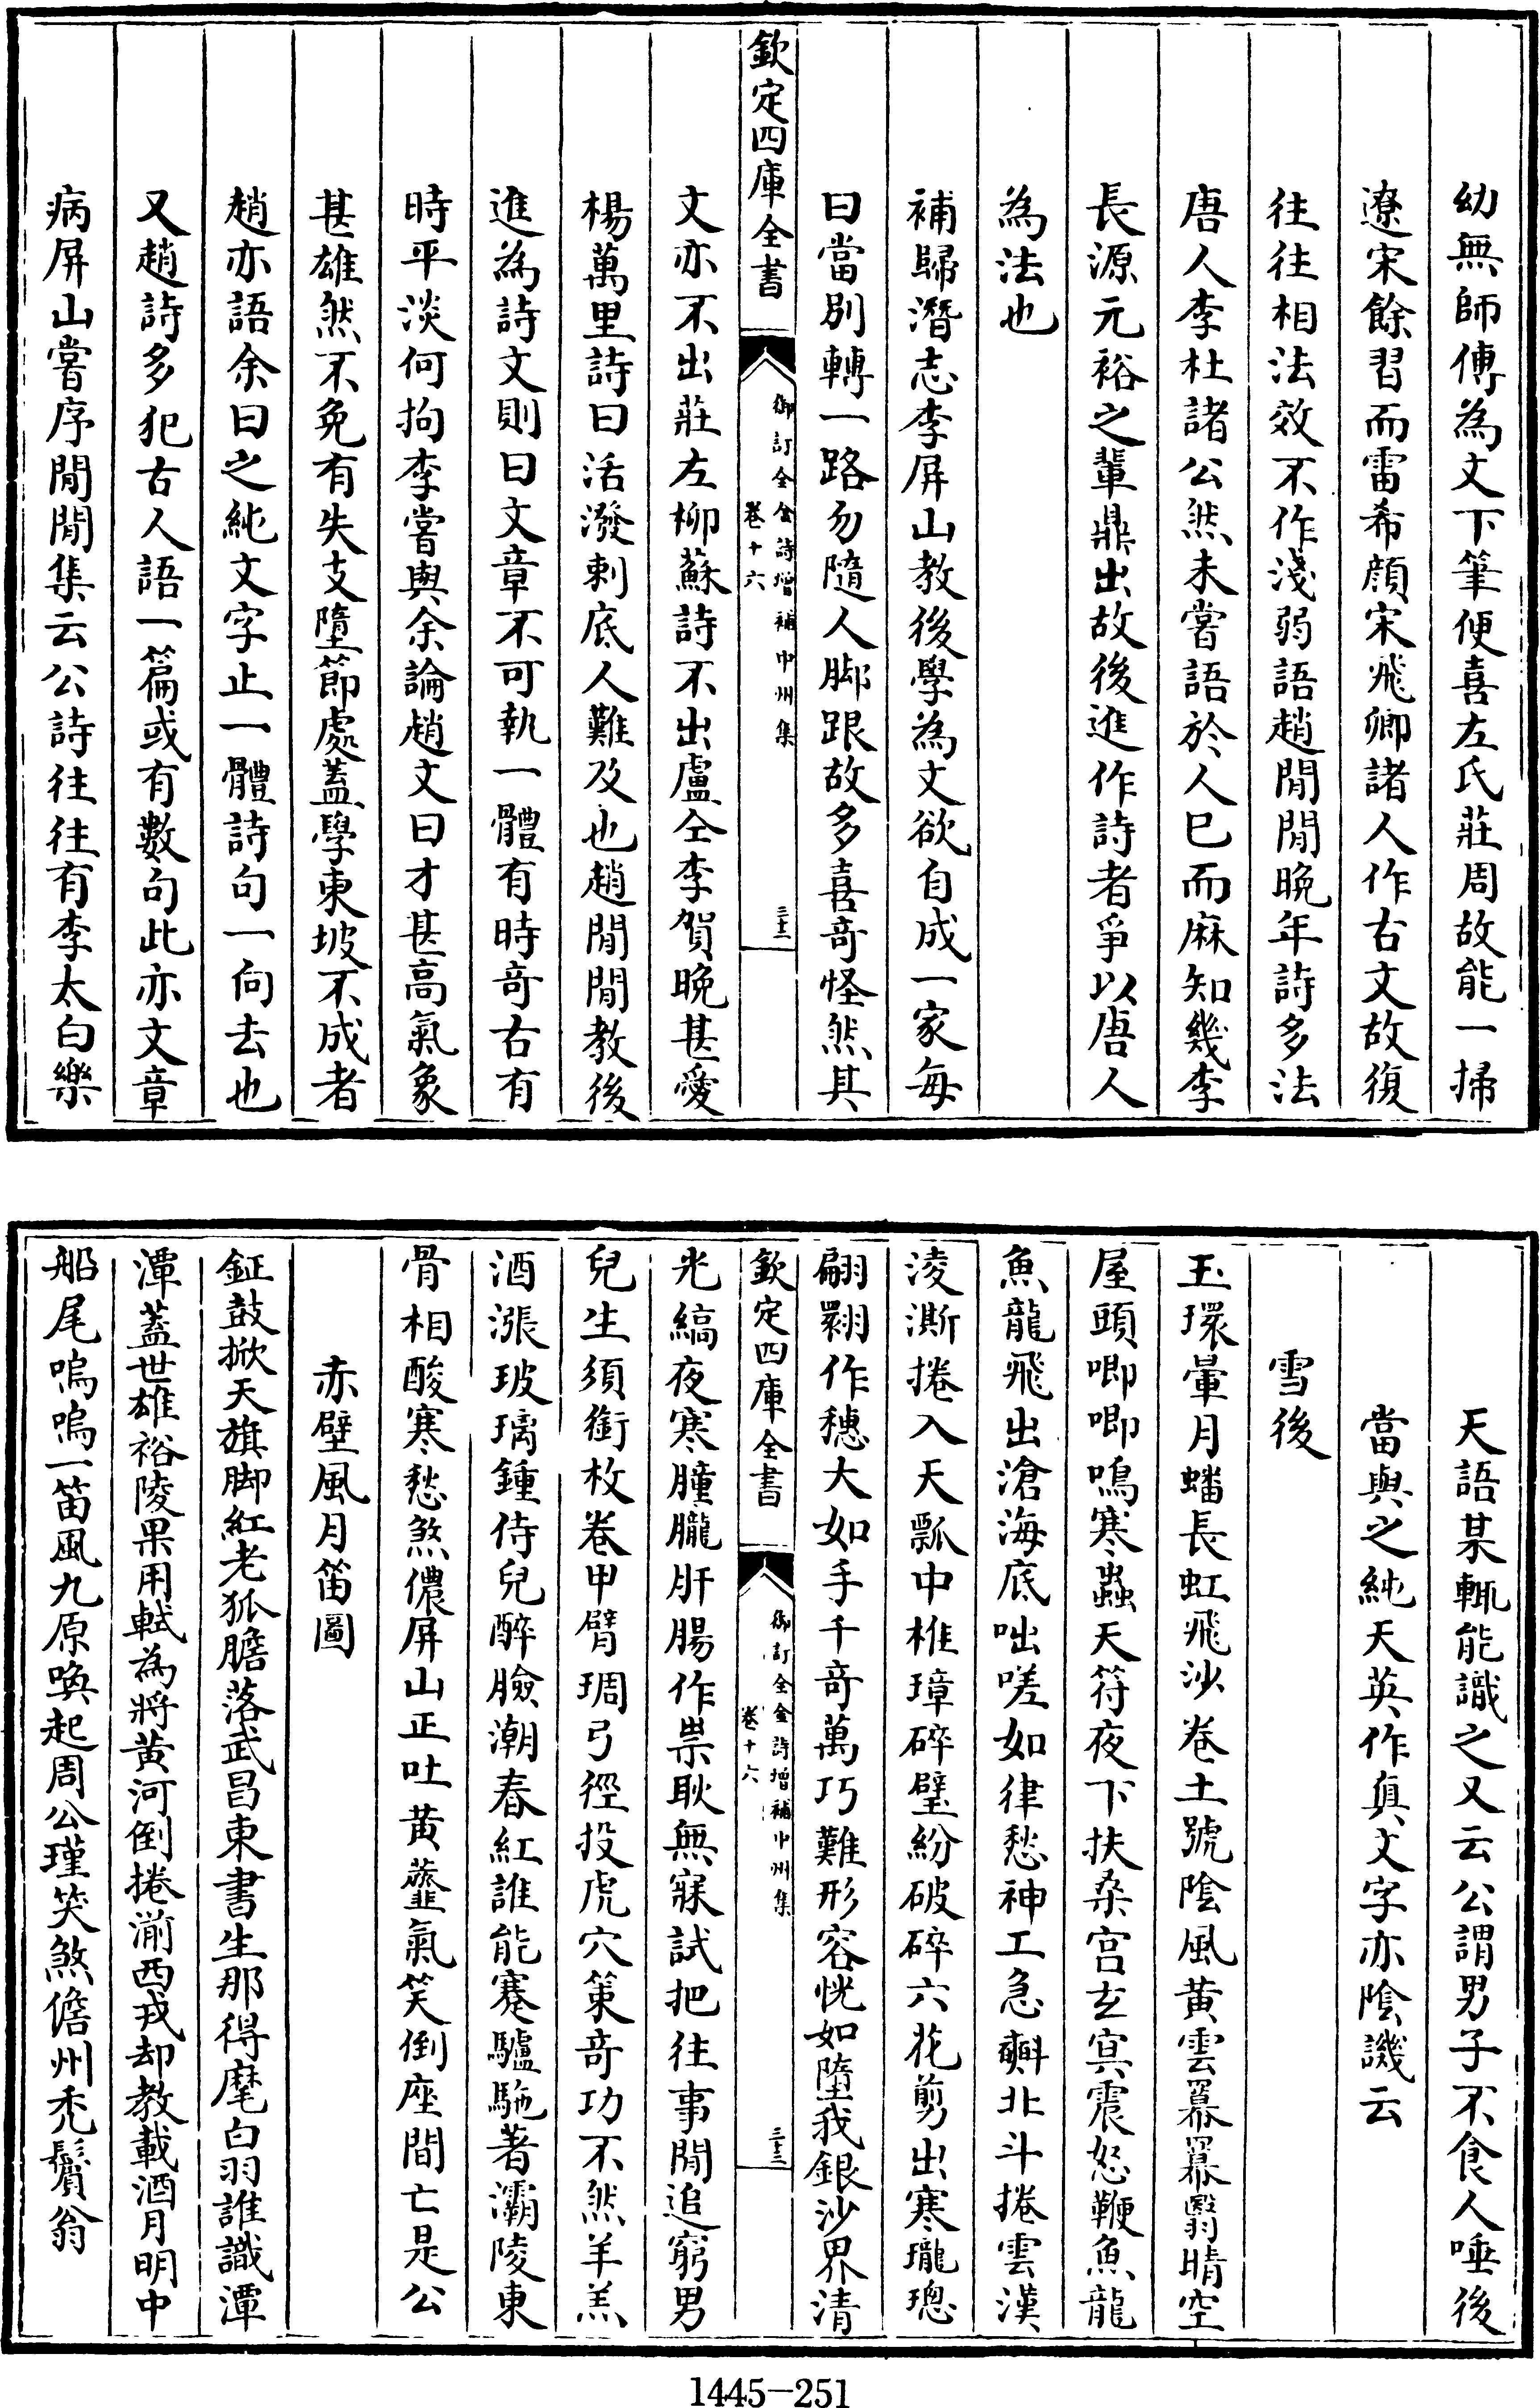 幼無師傅為文下筆便喜左氏莊周故能一掃
遼宋餘習而雷希顔宋飛卿諸人作古文故復
往往相法效不作淺弱語趙閒閒晩年詩多法
唐人李杜諸公然未嘗語於人已而麻知幾李
長源元裕之輩鼎出故後進作詩者爭以唐人
為法也
補歸潛志李屏山教後學為文欲自成一家每
曰當别轉一路勿隨人脚跟故多喜竒怪然其
欽定四庫全書
御訂全金詩增補中州集
卷十六
三十二
文亦不出莊左柳蘇詩不出盧仝李賀晩甚愛
楊萬里詩曰活潑剌底人難及也趙閒閒教後
進為詩文則曰文章不可執一體有時竒古有
時平淡何拘李嘗與余論趙文曰才甚高氣象
甚雄然不免有失支墮節處蓋學東坡不成者
趙亦語余曰之純文字止一體詩句一向去也
又趙詩多犯古人語一篇或有數句此亦文章
病屏山嘗序閒閒集云公詩往往有李太白樂
天語某輒能識之又云公謂男子不食人唾後
當與之純天英作真文字亦隂譏云
雪後
玉環暈月蟠長虹飛沙卷土號隂風黄雲羃羃翳晴空
屋頭唧唧鳴寒蟲天符夜下扶桑宫玄冥震怒鞭魚龍
魚龍飛出滄海底咄嗟如律愁神工急㪺北斗捲雲漢
淩澌捲入天瓢中椎璋碎璧紛破碎六花剪出寒瓏璁
翩翾作穗大如手千竒萬巧難形容恍如墮我銀沙界清
欽定四庫全書
御訂全金詩增補中州集
卷十六
三十三
光縞夜寒朣朧肝腸作祟耿無寐試把往事閒追窮男
兒生須銜枚卷甲臂琱弓徑投虎穴策竒功不然羊羔
酒漲玻璃鍾侍兒醉臉潮春紅誰能蹇驢馳著灞陵東
骨相酸寒愁煞儂屏山正吐黄虀氣笑倒座間亡是公
赤壁風月笛圖
鉦鼓掀天旗脚紅老狐膽落武昌東書生那得麾白羽誰識潭
潭蓋世雄裕陵果用軾為將黄河倒捲湔西戎却教載酒月明中
船尾嗚嗚一笛風九原喚起周公瑾笑煞儋州禿鬢翁
1445-251